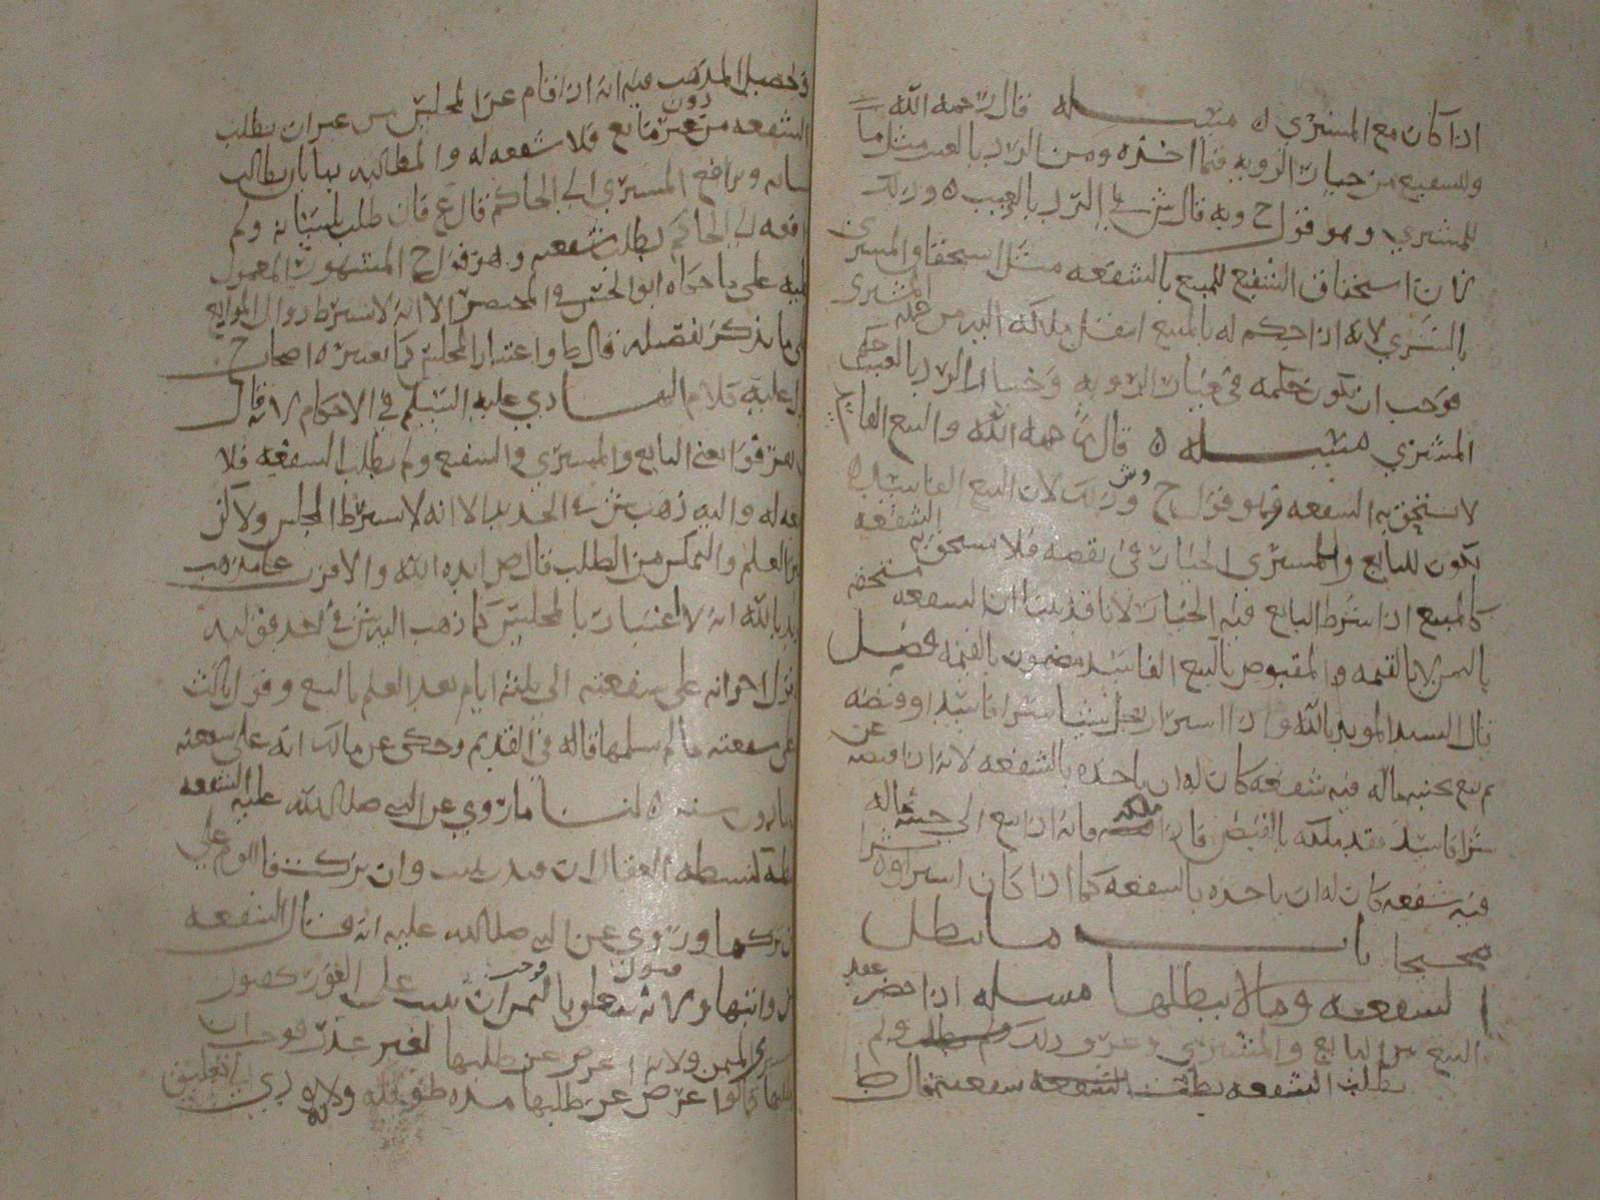 اذا كان مع المشتري ه مسئله قال رحمه الله
وللشفيع من خيار الرويه فيما اخذه ومن الرد بالعيب مثل ما
للمشتري وهو قول ح وبه قال ش في الرد بالعيب ه وذلك
لان استحقاق الشفيع للمبيع بالشفعه مثل استحقاق المشتري
بالشري لانه اذا حكم له بالمبيع انتقل ملكه اليه من جهه المشتري
فوجب ان يكون حكمه في خيار الرويه وخيار الرد بالعيب حكم
المشتري مسئله ه قال رحمه الله والبيع الفاسد
لا يستحق به الشفعه وهو قول ح وش وذلك لان البيع الفاسد
يكون للبايع والمشتري الخيار في نقضه فلا يستحق به الشفعه
كالمبيع اذا شرط البايع فيه الخيار لانا قد بينا ان الشفعه تستحق
بالثمن لا بالقيمه والمقبوض بالبيع الفاسد مضمون بالقيمه فصل
قال السيد المويد بالله واذا اشترا رجل شيا شرا فاسدا وقبضه
ثم بيع بجنبه ماله فيه شفعه كان له ان ياخذه بالشفعه لانه اذا قبضه عن
شرا فاسد فقد ملكه بالقبض فاذا ملكه وانه اذا بيع الى جنبه ماله
فيه شفعه كان له ان ياخذه بالشفعه كما اذا كان اشتراه شرا
صحيحا باب ما يبطل
الشفعه وما لا يبطلها مسله اذا حضر عقد
البيع من البايع والمشتري وعرف ذلك ولم
يطلب الشفعه بطلت شفعته قال ط
وتحصيل المذهب فيه انه اذا قام عن المجلس من غير ان يطلب
الشفعه من دون مانع فلا شفعه له والمطالبه بها بان يطالب
بلسانه ويرافع المشتري الى الحاكم قال ع فان طلب بلسانه ولم
يرافعه الى الحاكم بطلت شفعته وهو قول ح المشهور المعمول
عليه على ما حكاه ابو الحسن في المختصر الا انه لا يشترط زوال الموانع
على ما نذكر تفصيله قال ط واعتبار المجلس كما يعتبره اصحاب ح
يدل عليه كلام الهادي عليه السلم في الاحكام لانه قال
البايع والمشتري والشفيع ولم يطلب الشفعه فلا
شفعه له واليه ذهب ش في الجديد الا انه لا يشترط المجلس ولاكن
العلم والتمكن من الطلب قال ص ايده الله والاقرب على مذهب
المويد بالله انه لا اعتبار بالمجلس كما ذهب اليه ش في احد قوليه
وقول اخر انه على شفعته الى ثلثه ايام بعد العلم بالبيع وقول ثالث
على شفعته ما لم يسلمها قاله في القديم وحكى عن مالك انه على شفعته
سنه ه لنا ما روي عن النبي صلى الله عليه الشفعه
كنشطه العقال ان قيد ثبت وان تركت فاللوم على
من تركها وروي عن النبي صلى الله عليه انه قال الشفعه
لمن واثبها ولانه قبول تعلق بالثمن وجب ان يثبت على الفور كقبول
المشتري الثمن ولانه اعرض عن طلبها لغير عذر فوجب ان
كما لو اعرض عن طلبها مده طويله ولانه